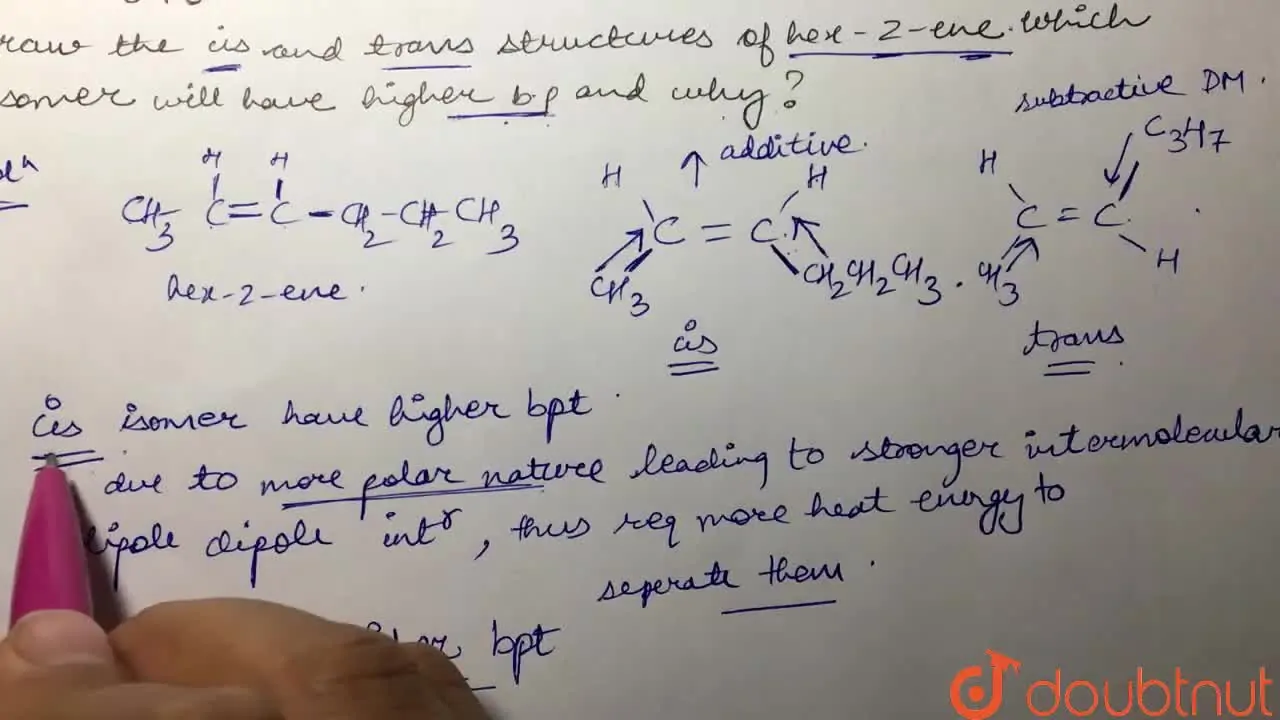 raw the cis and trans structures of hex-2-ene. Which
somer will have higher b.p and why?
subtractive DM.
additive.
H H
CH3-C=C-CH2-CH2-CH3
hex-2-ene.
H H
C=C
CH3 CH2CH2CH3.
cis
H C3H7
C=C
CH3 H
trans
cis isomer have higher bpt
due to more polar nature leading to stronger intermolecular
dipole int^r, thus req more heat energy to
seperate them.
bpt
doubtnut